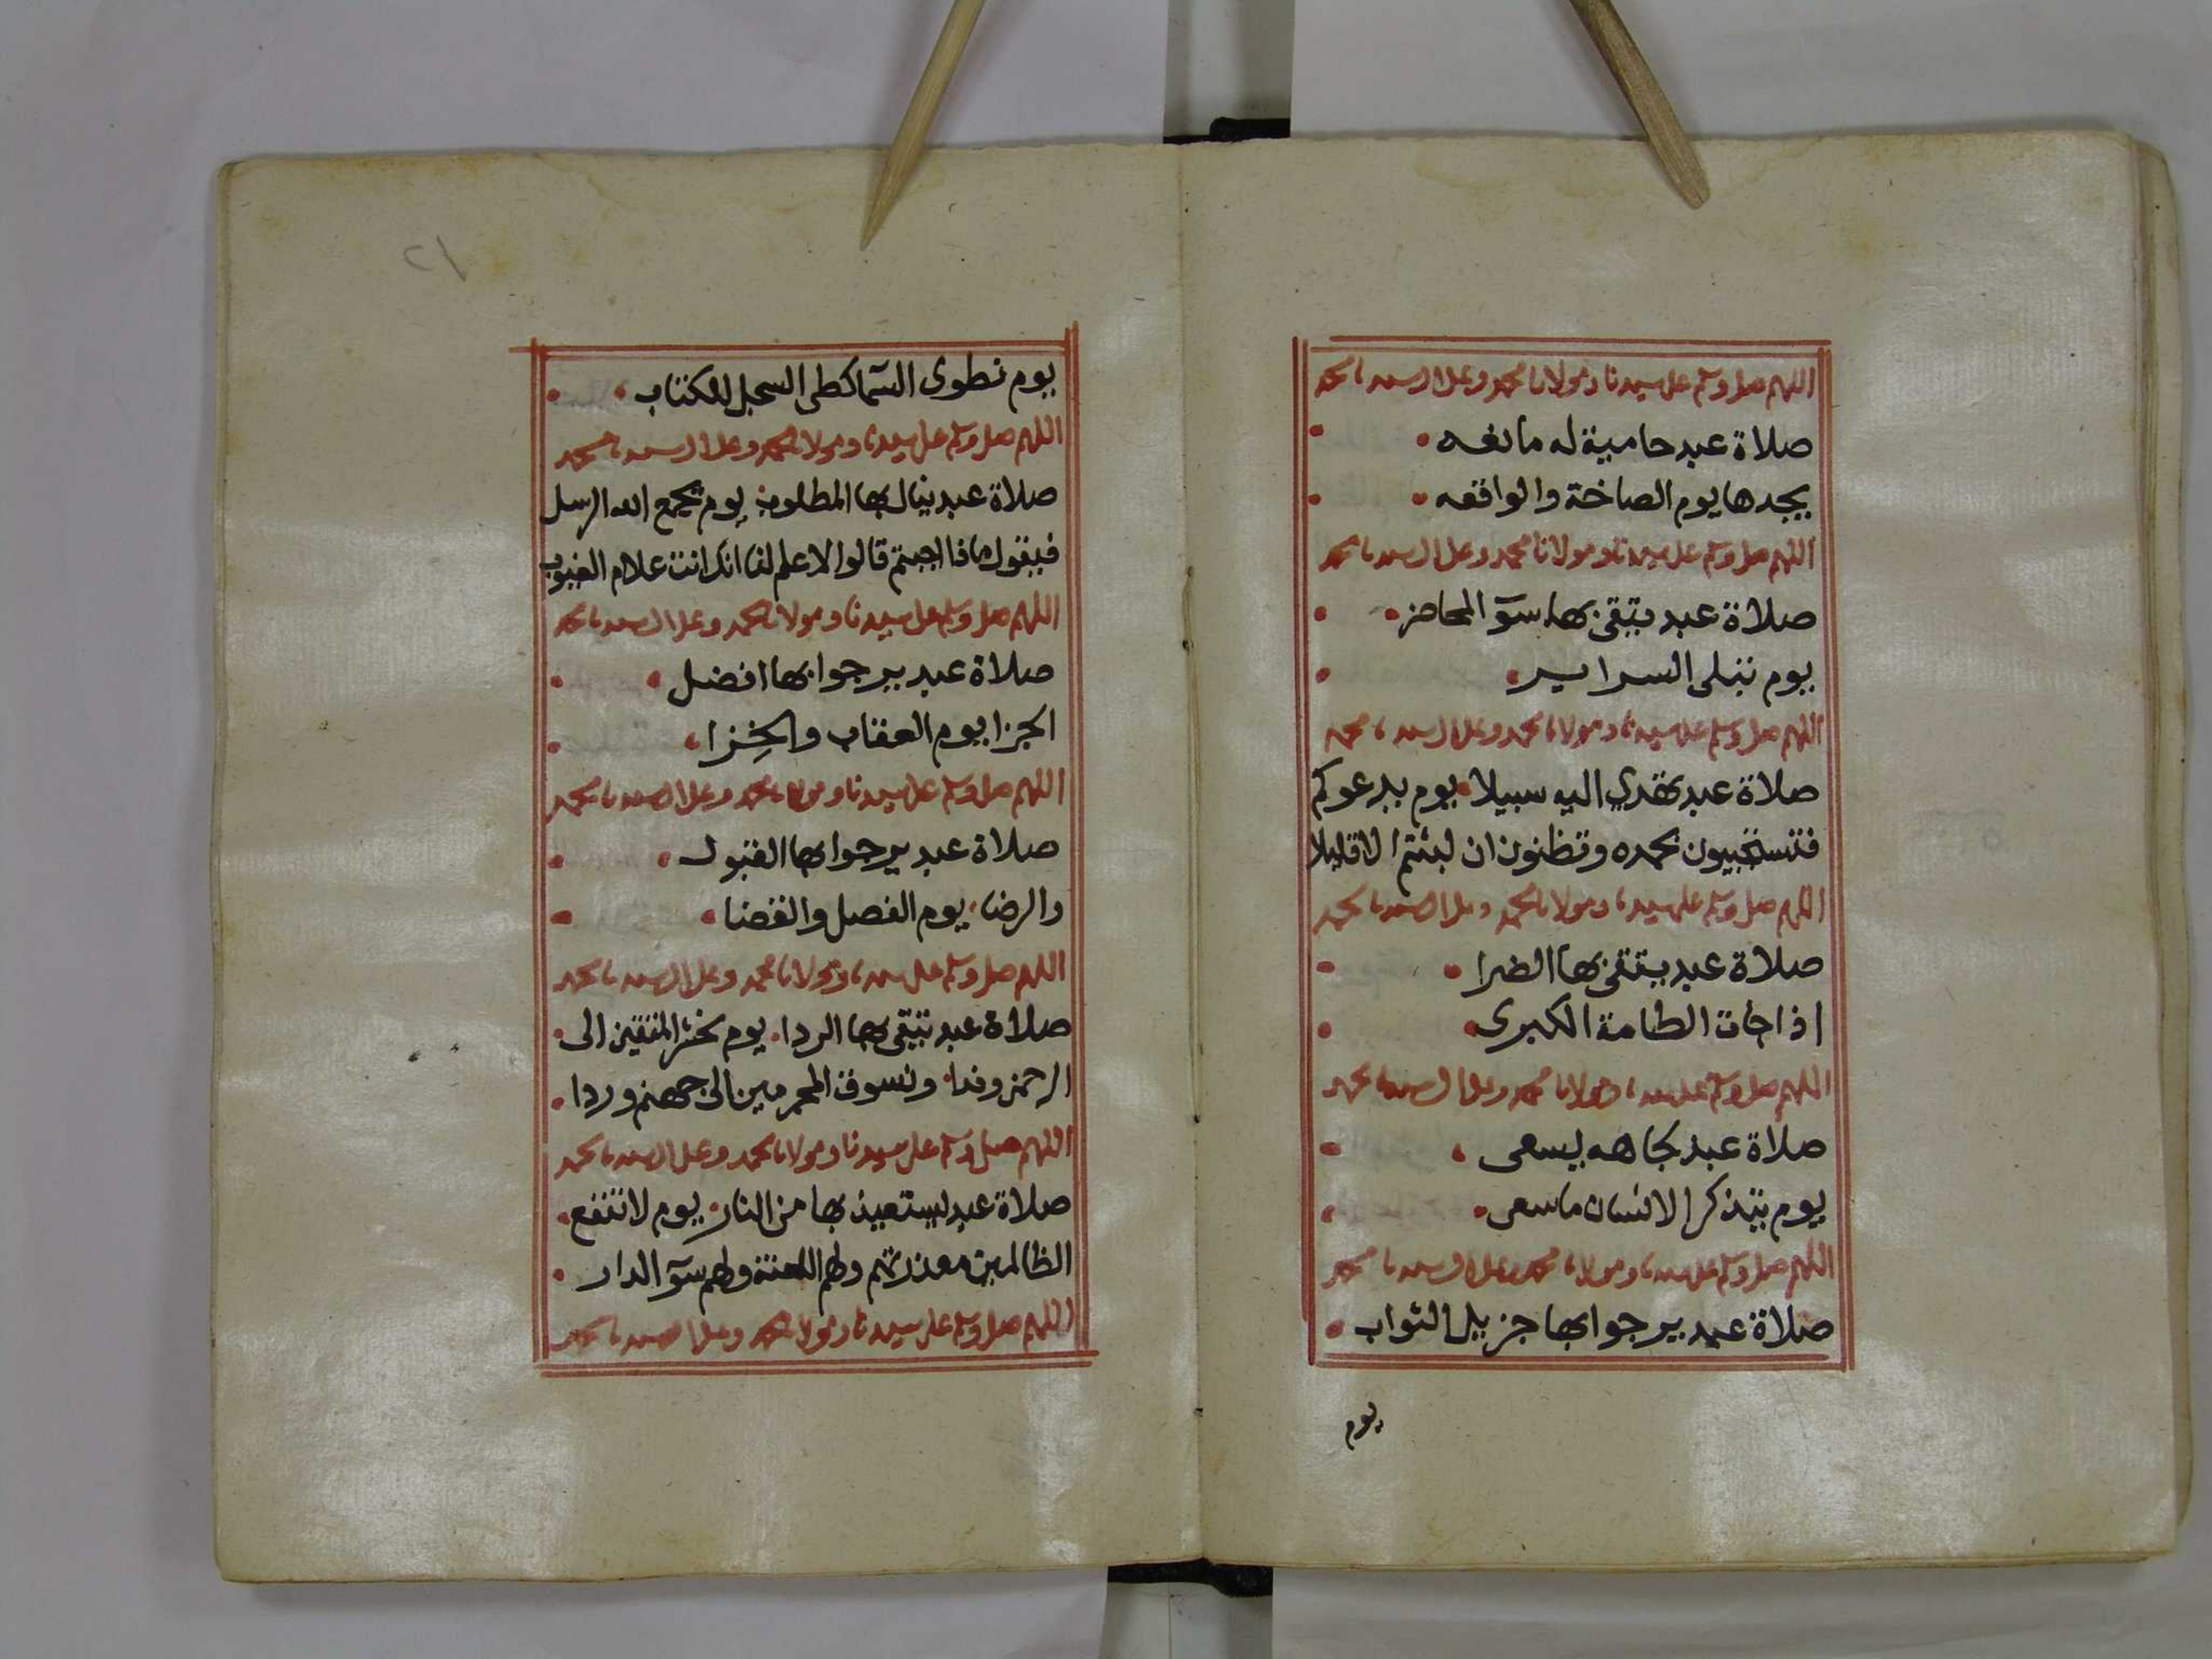 اللهم صل وسلم على سيدنا ومولانا محمد وعلى ال سيدنا محمد
صلاة عبد حامية له مانعه
يجدها يوم الصاخة والواقعه
اللهم صل وسلم على سيدنا ومولانا محمد وعلى ال سيدنا محمد
صلاة عبد يتقى بها سوٓ المحاضر
يوم تبلى السراير
اللهم صل وسلم على سيدنا ومولانا محمد وعلى ال سيدنا محمد
صلاة عبد يهتدي اليه سبيلا يوم يدعوكم
فتستجيبون بحمده وتظنون ان لبثتم الا قليلا
اللهم صل وسلم على سيدنا ومولانا محمد وعلى ال سيدنا محمد
صلاة عبد يتقى بها الضرا
اذا جأت الطامة الكبرى
اللهم صل وسلم على سيدنا ومولانا محمد وعلى ال سيدنا محمد
صلاة عبد بجاهه يسعى
يوم يتذكر الانسان ما سعى
اللهم صل وسلم على سيدنا ومولانا محمد وعلى ال سيدنا محمد
صلاة عبد يرجوا بها جزيل الثواب
يوم
٢١
يوم نطوى السٓما كطى السجل للكتاب
اللهم صل وسلم على سيدنا ومولانا محمد وعلى ال سيدنا محمد
صلاة عبد ينال بها المطلوب يوم يجمع الله الرسل
فيقول ماذا اجبتم قالوا لا علم لنا انك انت علام الغيوب
اللهم صل وسلم على سيدنا ومولانا محمد وعلى ال سيدنا محمد
صلاة عبد يرجوا بها افضل
الجزا يوم العقاب والخِزا
اللهم صل وسلم على سيدنا ومولانا محمد وعلى ال سيدنا محمد
صلاة عبد يرجوا بها القبول
والرضا يوم الفصل والقضا
اللهم صل وسلم على سيدنا ومولانا محمد وعلى ال سيدنا محمد
صلاة عبد يتقى بها الردا يوم نحشر المتقين الى
الرحمن وفدا ونسوق المجرمين الى جهنم وردا
اللهم صل وسلم على سيدنا ومولانا محمد وعلى ال سيدنا محمد
صلاة عبد يستعيذ بها من النار يوم لا تنفع
الظالمين معذرتهم ولهم اللعنة ولهم سوٓ الدار
اللهم صل وسلم على سيدنا ومولانا محمد وعلى ال سيدنا محمد